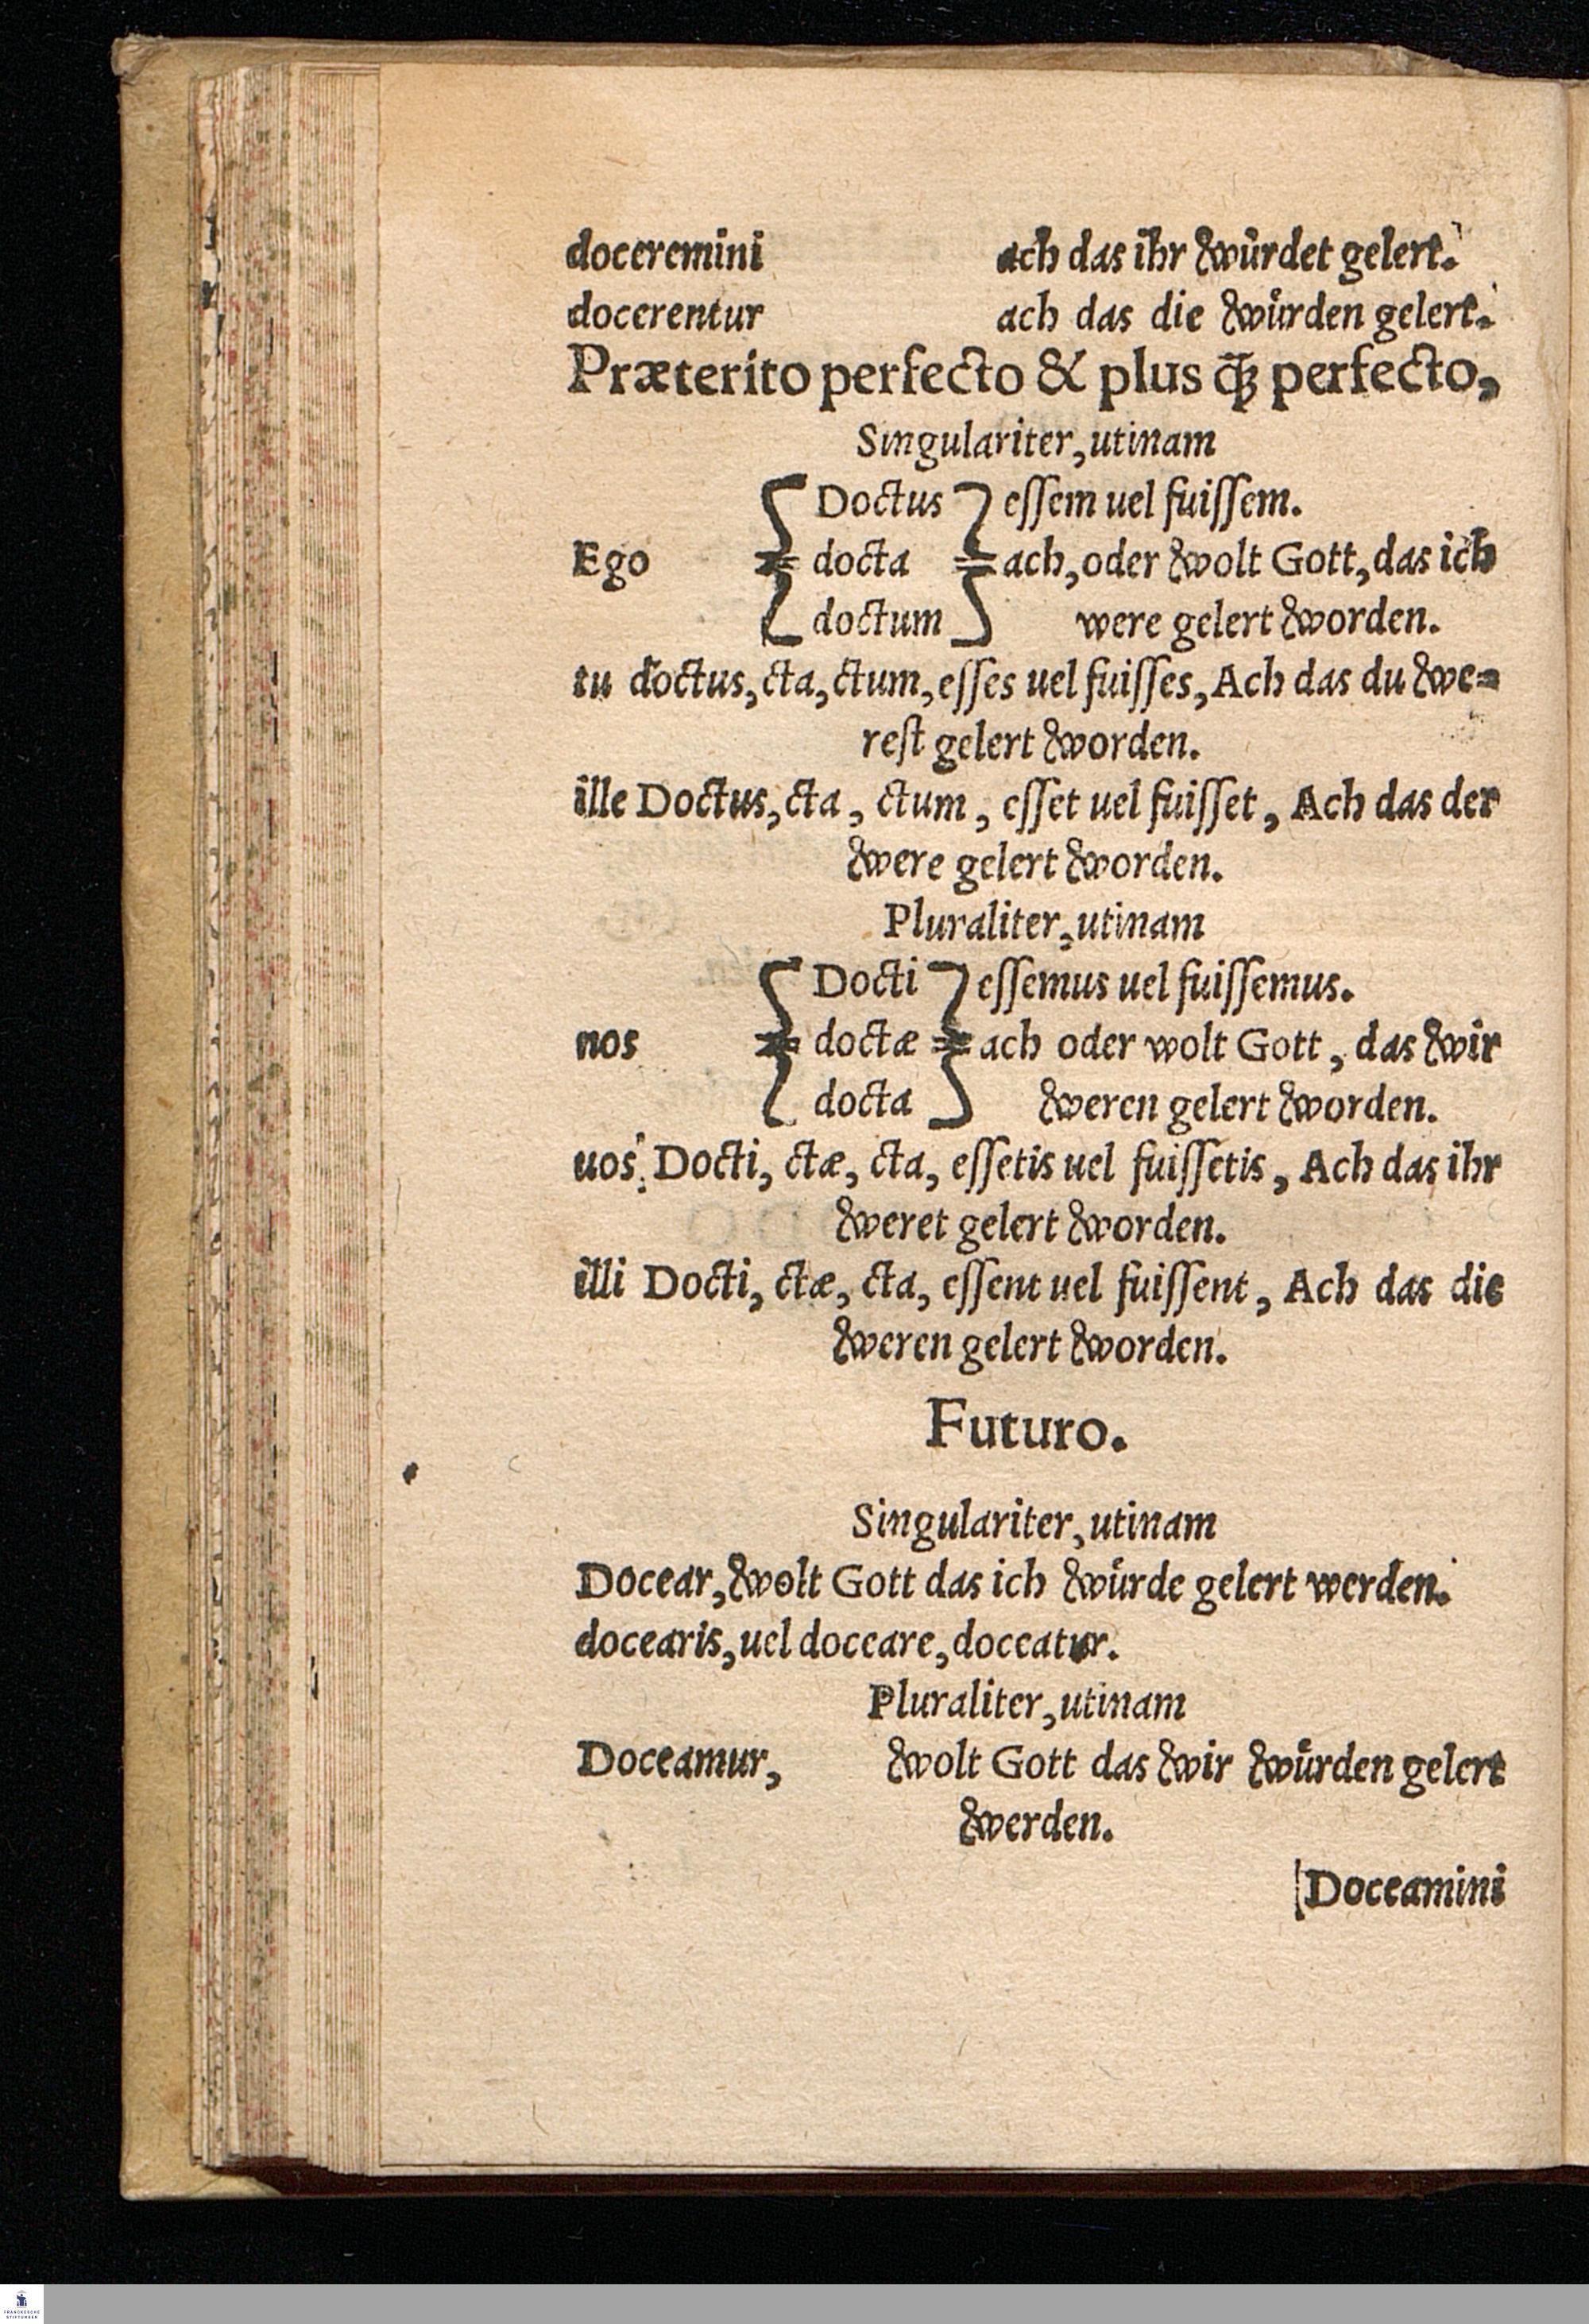 doceremini ach das ihr wůrdet gelert.
docerentur ach das die wůrden gelert.
Præterito perfecto & plus q̃ꝫ perfecto,
Singulariter, utinam
Doctus eſſem uel fuiſſem.
Ego docta ach, oder wolt Gott, das ich
doctum were gelert worden.
tu doctus, cta, ctum, eſſes uel fuiſſes, Ach das du we=
reſt gelert worden.
ille Doctus, cta, ctum, eſſet uel fuiſſet, Ach das der
were gelert worden.
Pluraliter, utinam
Docti eſſemus uel fuiſſemus.
nos doctæ ach oder wolt Gott, das wir
docta weren gelert worden.
uos Docti, ctæ, cta, eſſetis uel fuiſſetis, Ach das ihr
weret gelert worden.
illi Docti, ctæ, cta, eſſent uel fuiſſent, Ach das die
weren gelert worden.
Futuro.
Singulariter, utinam
Docear, wolt Gott das ich wůrde gelert werden.
docearis, uel doceare, doceatur.
Pluraliter, utinam
Doceamur, wolt Gott das wir wůrden gelert
werden.
Doceamini
FRANCKESCHE
STIFTUNGEN